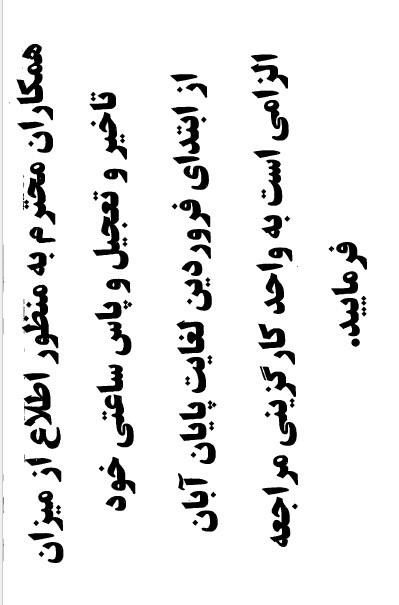 همکاران محترم به منظور اطلاع از میزان
تاخیر و تعجیل و پاس ساعتی خود
از ابتدای فروردین لغایت پایان آبان
الزامی است به واحد کارگزینی مراجعه
فرمایید.